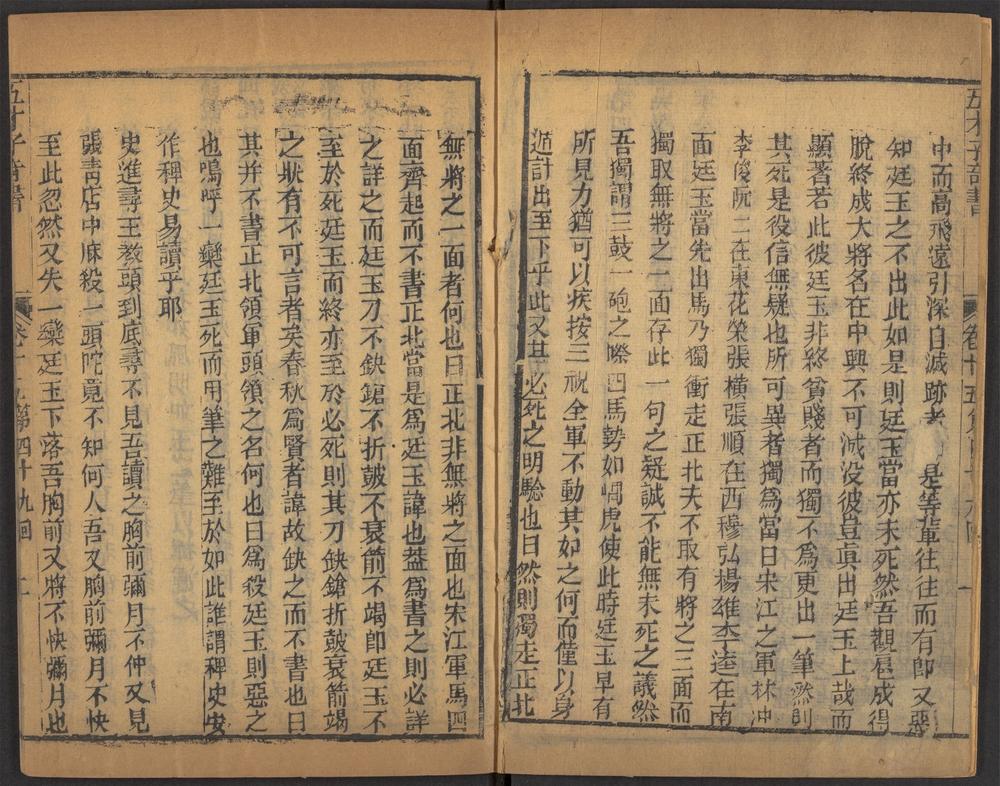 五才子奇書
卷十五
中而高飛遠引深自滅跡者 是等輩往往而有卽又惡
知廷玉之不出此如是則廷玉當亦未死然吾觀扈成得
脫終成大將名在中興不可滅没彼豈眞出廷玉上哉而
顯著若此彼廷玉非終貧賤者而獨不爲更出一筆然則
其死是役信無疑也所可異者獨爲當日宋江之軍林冲
李俊阮二在東花榮張橫張順在西穆弘楊雄李逵在南
面廷玉當先出馬乃獨衝走正北夫不取有將之三面而
獨取無將之一面存此一句之疑誠不能無未死之議然
吾獨謂三鼓一砲之際四馬勢如嵎虎使此時廷玉早有
所見力猶可以疾按三祝全軍不動其如之何而僅以身
遁計出至下乎此又其必死之明驗也曰然則獨走正北
無將之一面者何也曰正北非無將之面也宋江軍馬四
面齊起而不書正北當是爲廷玉諱也葢爲書之則必詳
之詳之而廷玉刀不缺鎗不折皷不衰箭不竭卽廷玉不
至於死廷玉而終亦至於必死則其刀缺鎗折皷衰箭竭
之狀有不可言者矣春秋爲賢者諱故缺之而不書也曰
其并不書正北領軍頭領之名何也曰爲殺廷玉則惡之
也嗚呼一欒廷玉死而用筆之難至於如此誰謂稗史安
作稗史易讀乎耶
史進尋王教頭到底尋不見吾讀之胸前彌月不快又見
張靑店中麻殺一頭陀竟不知何人吾又胸前彌月不快
至此忽然又失一欒廷玉下落吾胸前又將不快彌月也
五才子奇書
卷十五第四十九回
二